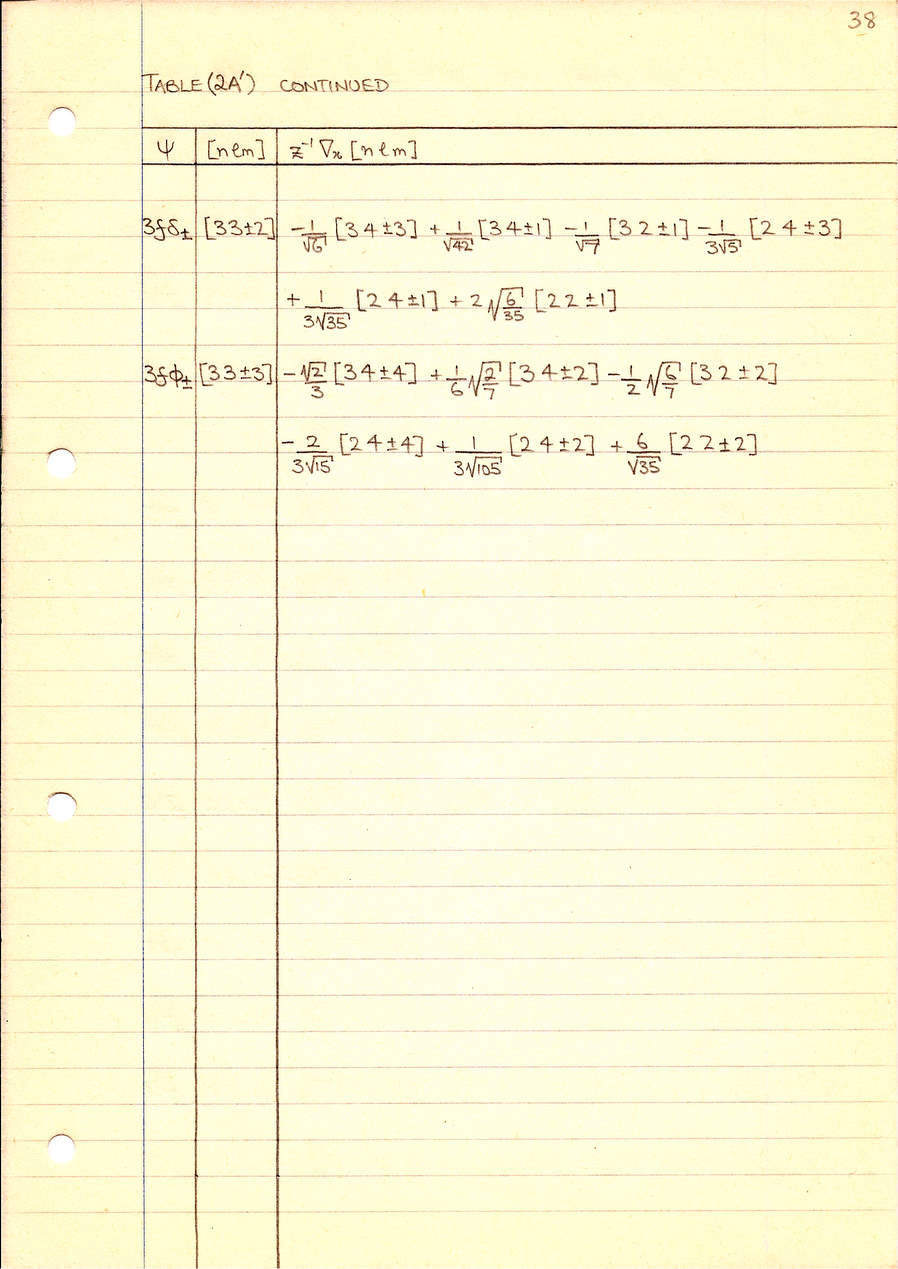 38
TABLE (2A') CONTINUED
ψ [nℓm] z⁻¹ ∇ₓ [nℓm]
3fδ± [33±2] -1/√6 [34±3] + 1/√42 [34±1] - 1/√7 [32±1] - 1/3√5 [24±3]
+ 1/3√35 [24±1] + 2√6/35 [22±1]
3fϕ± [33±3] -√2/3 [34±4] + 1/6 √2/7 [34±2] - 1/2 √6/7 [32±2]
- 2/3√15 [24±4] + 1/3√105 [24±2] + 6/√35 [22±2]